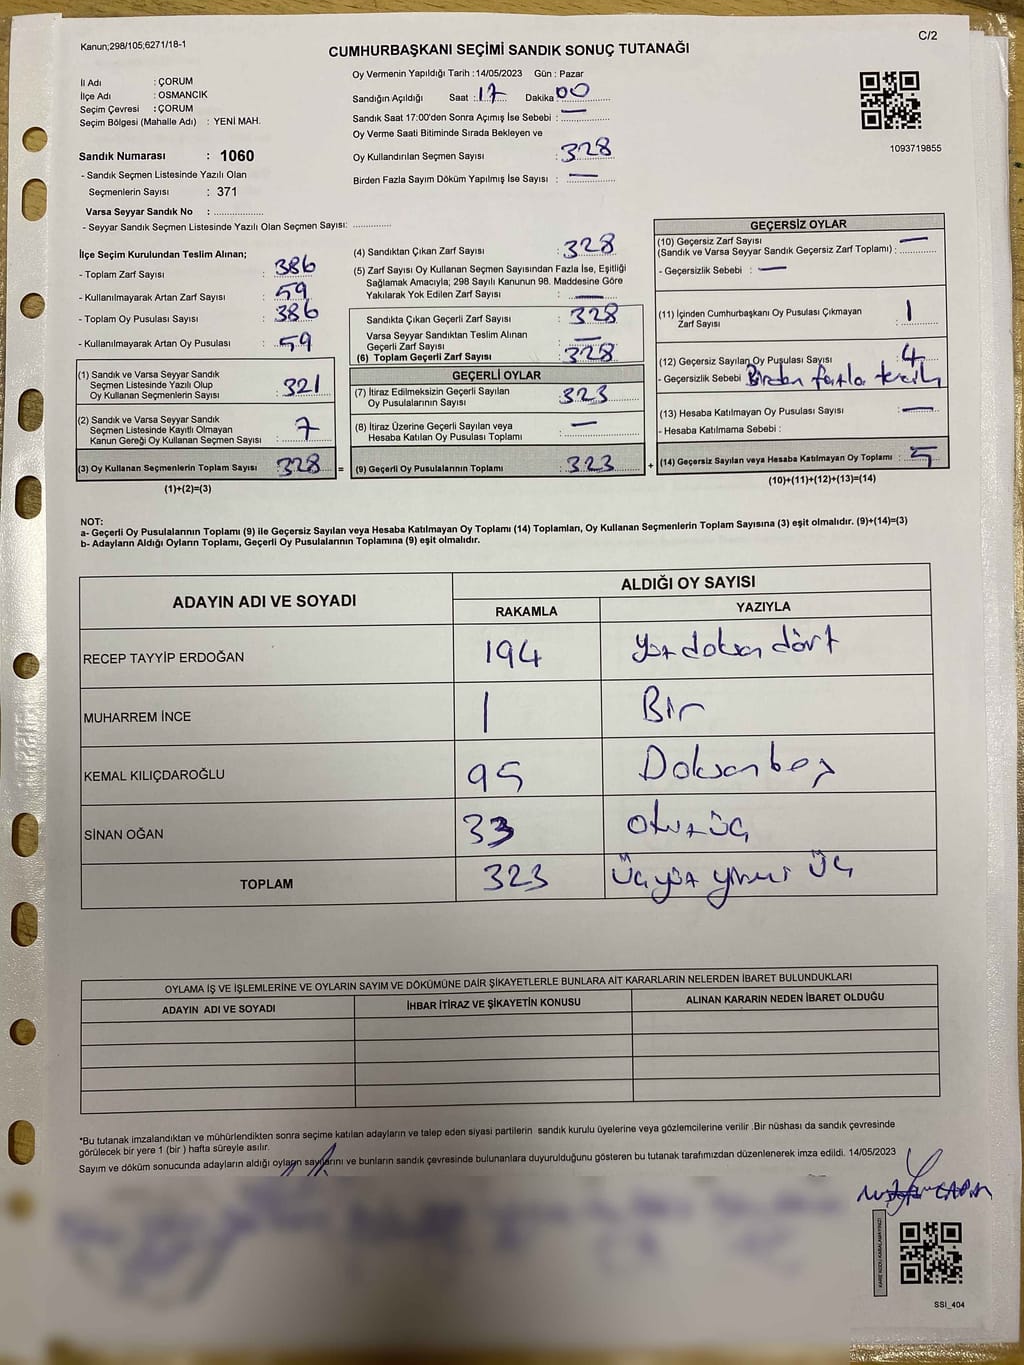 Kanun;298/105;6271/18-1
C/2
CUMHURBAŞKANI SEÇİMİ SANDIK SONUÇ TUTANAĞI
İl Adı : ÇORUM
İlçe Adı : OSMANCIK
Seçim Çevresi : ÇORUM
Seçim Bölgesi (Mahalle Adı) : YENİ MAH.
Sandık Numarası : 1060
- Sandık Seçmen Listesinde Yazılı Olan
Seçmenlerin Sayısı : 371
Varsa Seyyar Sandık No : ..................
- Seyyar Sandık Seçmen Listesinde Yazılı Olan Seçmen Sayısı: ..............
Oy Vermenin Yapıldığı Tarih : 14/05/2023 Gün : Pazar
Sandığın Açıldığı Saat : 17 Dakika 00
Sandık Saat 17:00'den Sonra Açımış İse Sebebi : —
Oy Verme Saati Bitiminde Sırada Bekleyen ve
Oy Kullandırılan Seçmen Sayısı : 328
Birden Fazla Sayım Döküm Yapılmış İse Sayısı : —
1093719855
İlçe Seçim Kurulundan Teslim Alınan;
- Toplam Zarf Sayısı : 386
- Kullanılmayarak Artan Zarf Sayısı : 59
- Toplam Oy Pusulası Sayısı : 386
- Kullanılmayarak Artan Oy Pusulası : 59
(1) Sandık ve Varsa Seyyar Sandık
Seçmen Listesinde Yazılı Olup
Oy Kullanan Seçmenlerin Sayısı : 321
(2) Sandık ve Varsa Seyyar Sandık
Seçmen Listesinde Kayıtlı Olmayan
Kanun Gereği Oy Kullanan Seçmen Sayısı : 7
(3) Oy Kullanan Seçmenlerin Toplam Sayısı : 328 =
(1)+(2)=(3)
(4) Sandıktan Çıkan Zarf Sayısı : 328
(5) Zarf Sayısı Oy Kullanan Seçmen Sayısından Fazla İse, Eşitliği
Sağlamak Amacıyla; 298 Sayılı Kanunun 98. Maddesine Göre
Yakılarak Yok Edilen Zarf Sayısı : —
Sandıkta Çıkan Geçerli Zarf Sayısı : 328
Varsa Seyyar Sandıktan Teslim Alınan
Geçerli Zarf Sayısı : —
(6) Toplam Geçerli Zarf Sayısı : 328
GEÇERLİ OYLAR
(7) İtiraz Edilmeksizin Geçerli Sayılan
Oy Pusulalarının Sayısı : 323
(8) İtiraz Üzerine Geçerli Sayılan veya
Hesaba Katılan Oy Pusulası Toplamı : —
(9) Geçerli Oy Pusulalarının Toplamı : 323 +
GEÇERSİZ OYLAR
(10) Geçersiz Zarf Sayısı
(Sandık ve Varsa Seyyar Sandık Geçersiz Zarf Toplamı) : —
- Geçersizlik Sebebi : —
(11) İçinden Cumhurbaşkanı Oy Pusulası Çıkmayan
Zarf Sayısı : 1
(12) Geçersiz Sayılan Oy Pusulası Sayısı : 4
- Geçersizlik Sebebi Birden fazla tercih
(13) Hesaba Katılmayan Oy Pusulası Sayısı : —
- Hesaba Katılmama Sebebi :
(14) Geçersiz Sayılan veya Hesaba Katılmayan Oy Toplamı : 5
(10)+(11)+(12)+(13)=(14)
NOT:
a- Geçerli Oy Pusulalarının Toplamı (9) ile Geçersiz Sayılan veya Hesaba Katılmayan Oy Toplamı (14) Toplamları, Oy Kullanan Seçmenlerin Toplam Sayısına (3) eşit olmalıdır. (9)+(14)=(3)
b- Adayların Aldığı Oyların Toplamı, Geçerli Oy Pusulalarının Toplamına (9) eşit olmalıdır.
ADAYIN ADI VE SOYADI ALDIĞI OY SAYISI
RAKAMLA YAZIYLA
RECEP TAYYİP ERDOĞAN 194 yüzdoksan dört
MUHARREM İNCE 1 Bir
KEMAL KILIÇDAROĞLU 95 Doksanbeş
SİNAN OĞAN 33 otuzüç
TOPLAM 323 üçyüz yirmi üç
OYLAMA İŞ VE İŞLEMLERİNE VE OYLARIN SAYIM VE DÖKÜMÜNE DAİR ŞİKAYETLERLE BUNLARA AİT KARARLARIN NELERDEN İBARET BULUNDUKLARI
ADAYIN ADI VE SOYADI İHBAR İTİRAZ VE ŞİKAYETİN KONUSU ALINAN KARARIN NEDEN İBARET OLDUĞU
*Bu tutanak imzalandıktan ve mühürlendikten sonra seçime katılan adayların ve talep eden siyasi partilerin sandık kurulu üyelerine veya gözlemcilerine verilir .Bir nüshası da sandık çevresinde
görülecek bir yere 1 (bir ) hafta süreyle asılır.
Sayım ve döküm sonucunda adayların aldığı oyların sayılarını ve bunların sandık çevresinde bulunanlara duyurulduğunu gösteren bu tutanak tarafımızdan düzenlenerek imza edildi. 14/05/2023
SSI_404